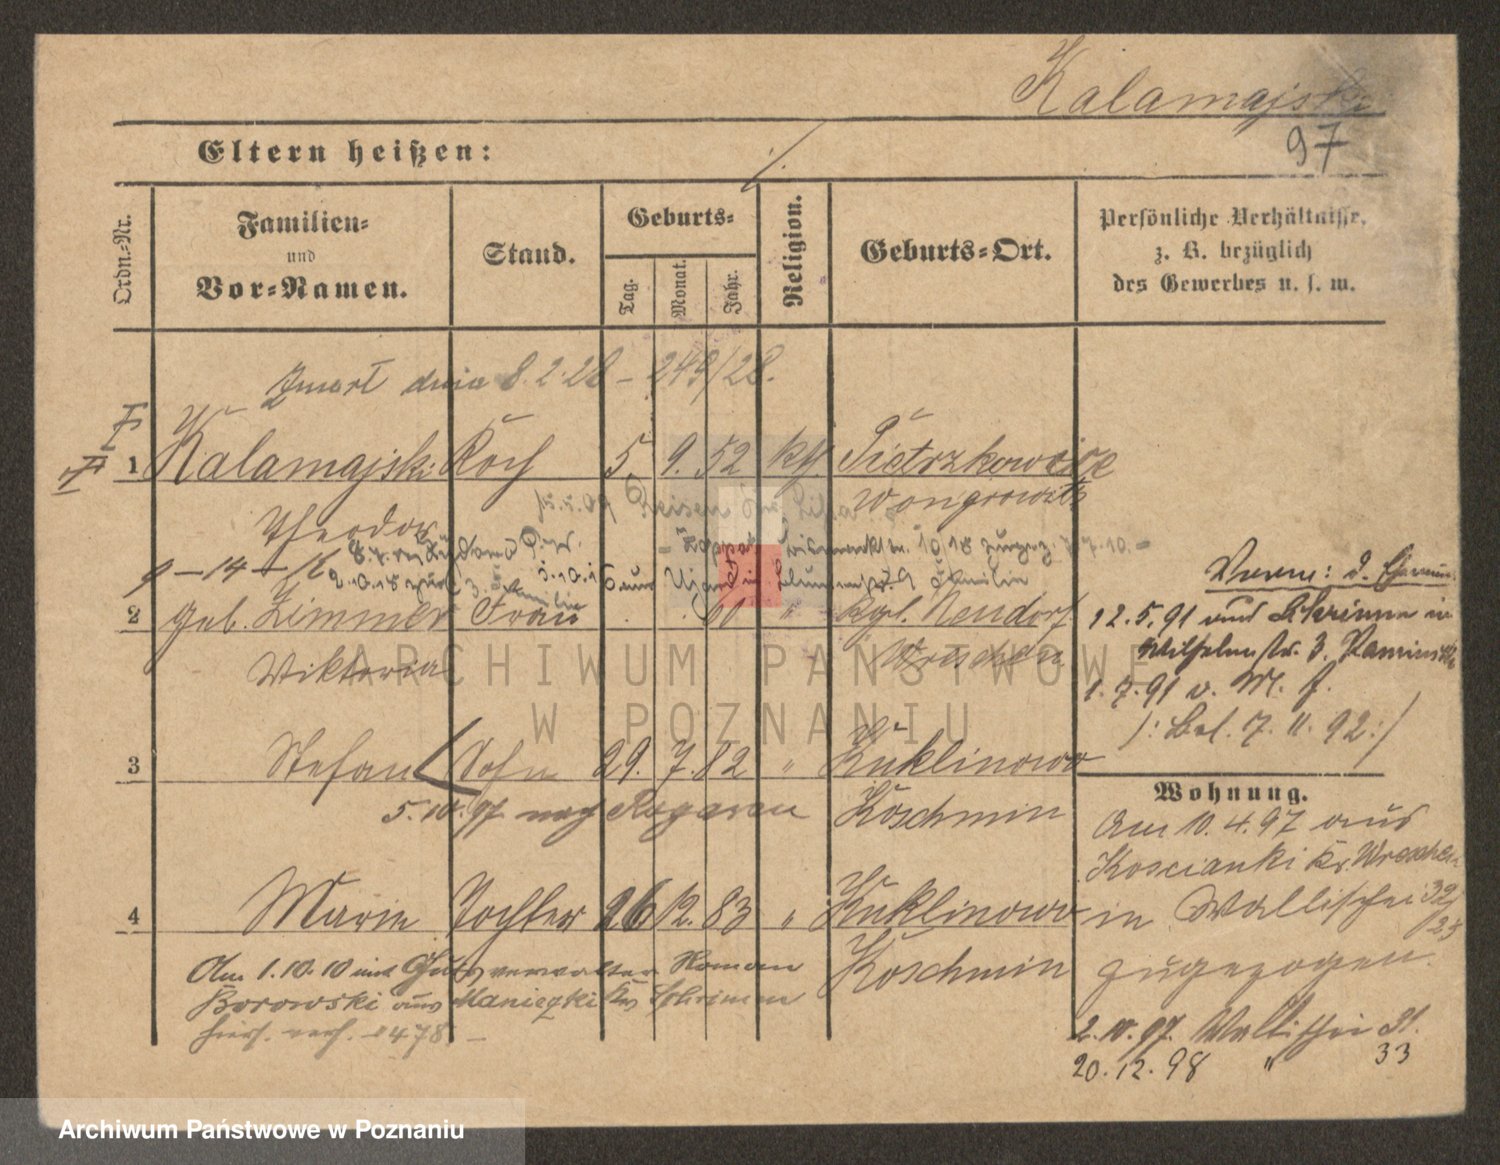 Kalamajski
97
Eltern heißen: ./.
Ordn.-Nr.
Familien-
und
Vor-Namen.
Stand.
Geburts-
Tag.
Monat.
Jahr.
Religion.
Geburts-Ort.
Persönliche Verhältnisse,
z. B. bezüglich
des Gewerbes u. s. w.
Zmarł dnia 8.2.28 - 249/28.
1 Kalamajski Koch 5. 9. 52 kth. Pietrzkowice
Theodor Wongrowitz
2 geb. Zimmer Frau 60 " Kgl. Neudorf
Viktoria Wreschen
3 Stefan Sohn 29. 7. 82 " Kuklinowo
5.10.97 nach Koschmin
4 Marie Tochter 26. 12. 83 " Kuklinowo
Koschmin
Am 1.10.10 mit Gutsverwalter Roman
Borowski aus Manieczki Kr. Schrimm
hier verh. 478
12.5.91 und Schrimm in
Wilhelmstr. 3.
1.7.91 v. M. f.
/: Bel. 7. 11. 92 :/
Wohnung.
Am 10.4.97 aus
Koscianki Kr. Wreschen
in Wallischei 32/
33
zugezogen.
2.10.97. Wallischei 31.
20.12.98 " 33
ARCHIWUM PAŃSTWOWE
W POZNANIU
Archiwum Państwowe w Poznaniu